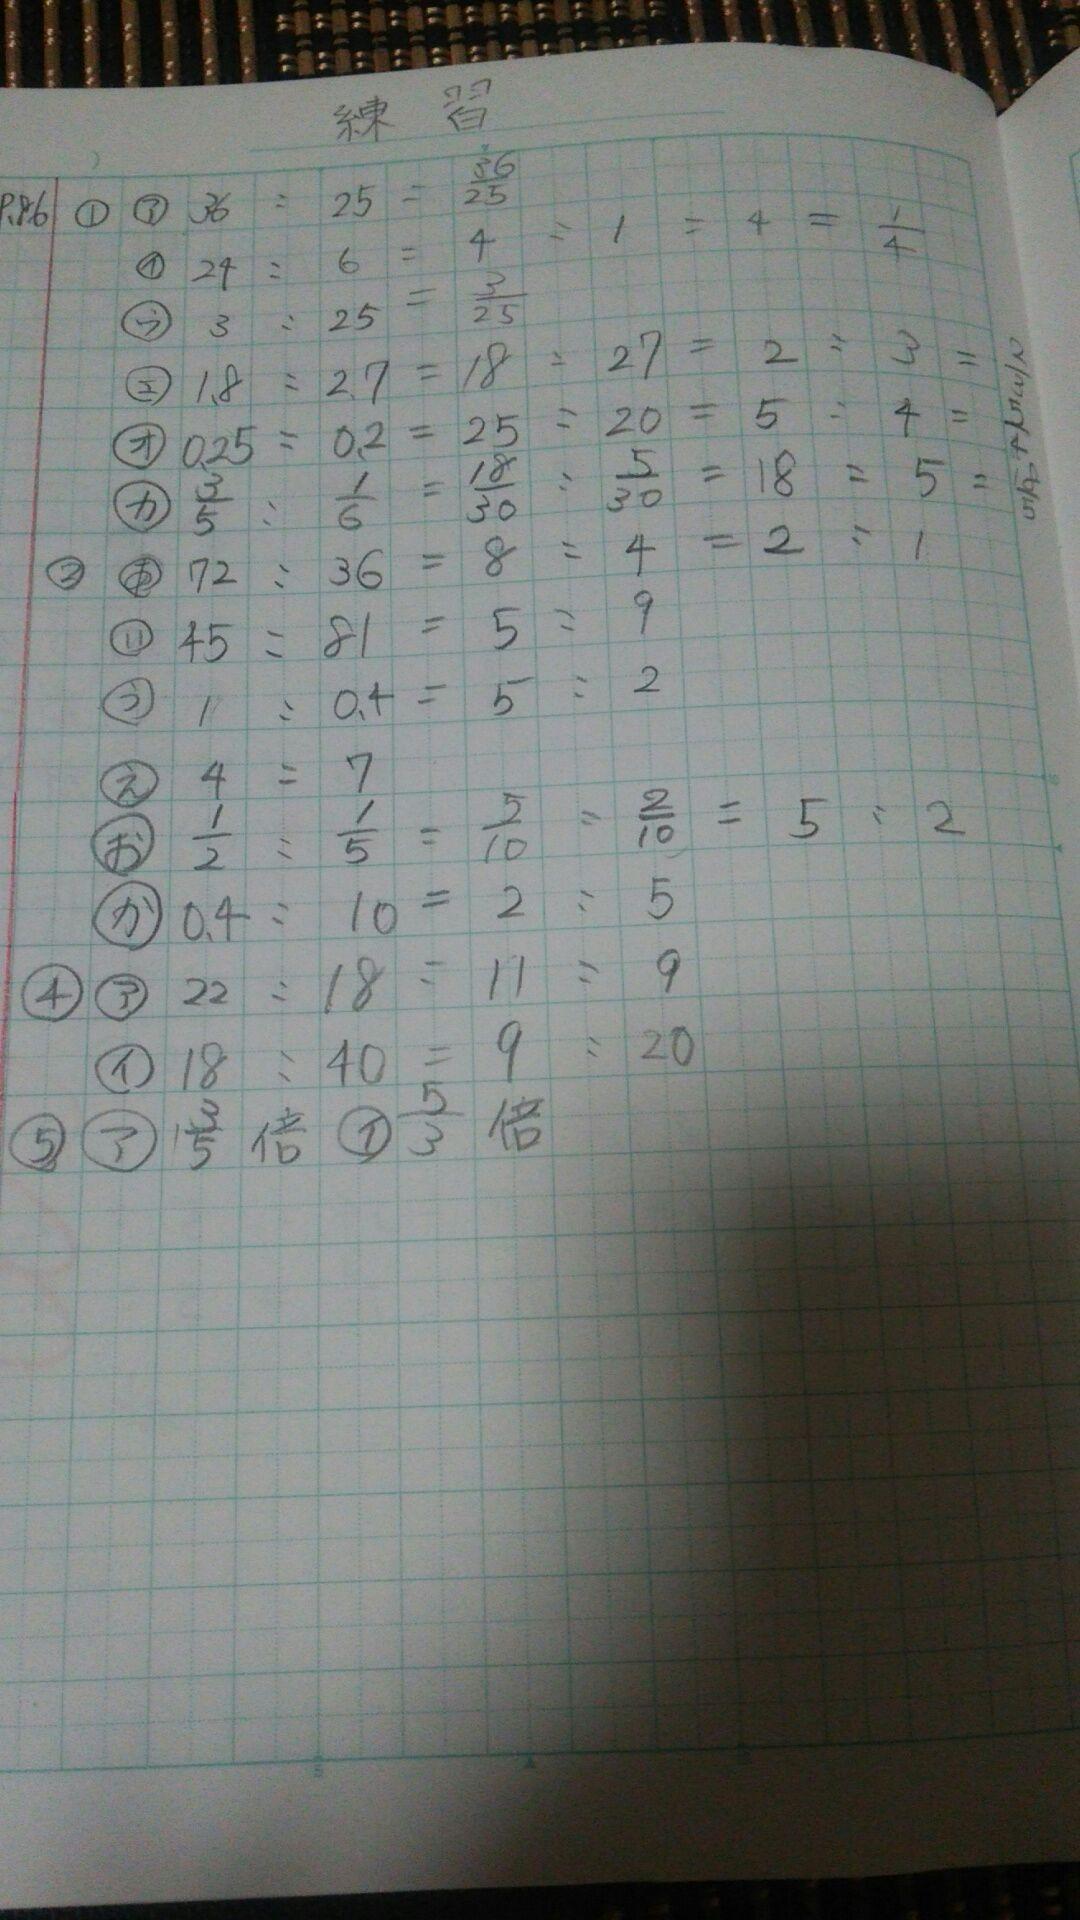 練習
P.86 ① ㋐ 36 : 25 = 36/25
㋑ 24 : 6 = 4 : 1 = 4 = 1/4
㋒ 3 : 25 = 3/25
㋓ 1.8 : 2.7 = 18 : 27 = 2 : 3 = 2/3
㋔ 0.25 : 0.2 = 25 : 20 = 5 : 4 = 5/4
㋕ 3/5 : 1/6 = 18/30 : 5/30 = 18 : 5 = 18/5
② あ 72 : 36 = 8 : 4 = 2 : 1
い 45 : 81 = 5 : 9
う 1 : 0.4 = 5 : 2
え 4 : 7
お 1/2 : 1/5 = 5/10 : 2/10 = 5 : 2
か 0.4 : 10 = 2 : 5
④ ㋐ 22 : 18 = 11 : 9
㋑ 18 : 40 = 9 : 20
⑤ ㋐ 3/5 倍 ㋑ 5/3 倍